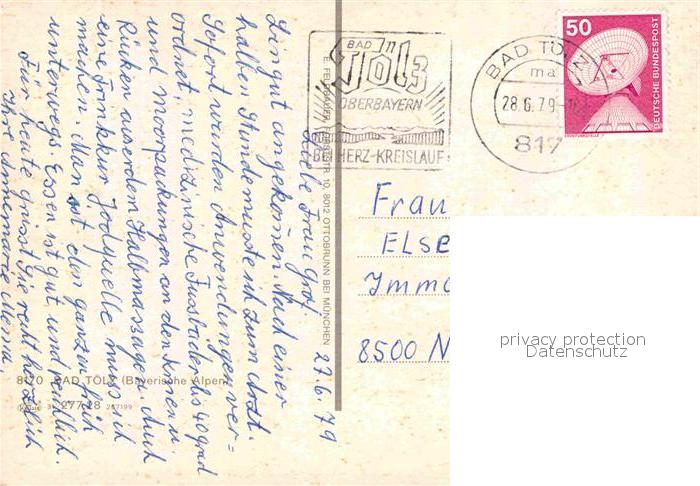 27.6.79
Liebe Frau Graf
Bin gut angekommen. Nach einer
halben Stunde musste ich zum Arzt.
Sofort wurden Anwendungen ver=
ordnet, medizinische Fussbäder bis 40 grad
und Moorpackungen an den Knien u.
Rücken ausserdem Halbmassagen. Auch
eine Trinkkur Jodquelle muss ich
machen. Man ist den ganzen
unterwegs. Essen ist gut und reichlich.
Für heute grüsst Sie recht herzlich
Ihre Annemarie
8170 BAD TÖLZ (Bayerische Alpen)
277/28 267199
OTTOBRUNN BEI MÜNCHEN
BAD
Tölz
OBERBAYERN
BEI HERZ-KREISLAUF
BAD TÖLZ
ma
28.6.79
817
50
DEUTSCHE BUNDESPOST
Frau
Else
Imm
8500 N
privacy protection
Datenschutz